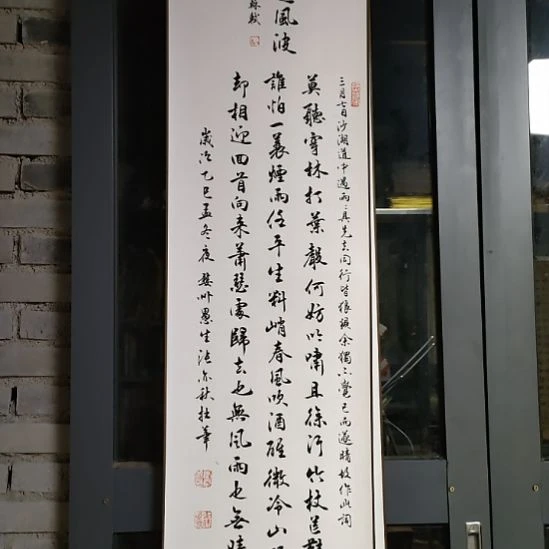 風波
蘇軾
三月七日沙湖道中遇雨〻具先去同行皆狼狽余獨不覺已而遂晴故作此詞
莫聽穿林打葉聲何妨吟嘯且徐行竹杖芒鞋
誰怕一蓑煙雨任平生料峭春風吹酒醒微冷山
却相迎回首向来蕭瑟處歸去也無風雨也无晴
歲次乙巳孟冬夜婺州愚生亦秋拙筆